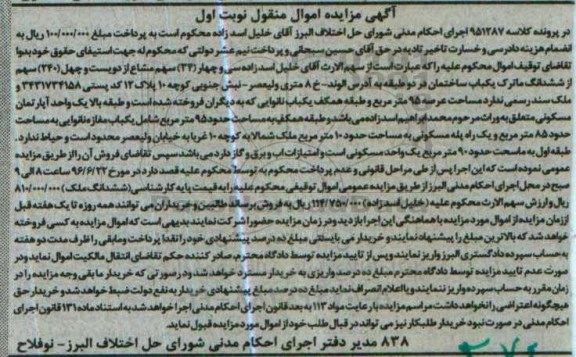 آگهی مزایده اموال منقول نوبت اول
در پرونده کلاسه ۹۵۱۲۸۷ اجرای احکام مدنی شورای حل اختلاف البرز آقای خلیل اسد زاده محکوم است به پرداخت مبلغ ۱۰۰/۰۰۰/۰۰۰ ریال به
انضمام هزینه دادرسی و خسارت تاخیر تادیه در حق آقای حسین سبحانی و پرداخت نیم عشر دولتی که محکوم له جهت استیفای حقوق خود بدوا
تقاضای توقیف اموال محکوم علیه را که عبارت است از سهم الارث آقای خلیل اسد زاده سی و چهار (۳۴) سهم مشاع از دویست و چهل (۲۴۰) سهم
از ششدانگ ماترک یکباب ساختمان در دو طبقه به آدرس الوند- خ ۸ متری ولیعصر - نبش جنوبی کوچه ۱۰ پلاک ۱۳ کد پستی ۳۴۳۱۷۳۴۱۵۸ و
ملک سند رسمی ندارد مساحت عرصه ۹۵ متر مربع و طبقه همکف یکباب نانوایی که به دیگران فروخته شده است و طبقه بالا یک واحد آپارتمان
مسکونی متعلق به وراث مرحوم محمد ابراهیم اسد زاده می باشد و طبقه همکف به مساحت حدود ۹۵ متر مربع شامل یکباب مغازه نانوایی به مساحت
حدود ۸۵ متر مربع و یک راه پله مسکونی به مساحت حدود ۱۰ متر مربع ملک شمالا به کوچه ۱۰ غربا به خیابان ولیعصر محدود است و حیاط ندارد.
طبقه اول به مساحت حدود ۹۰ متر مربع یک واحد مسکونی است و امتیازات اب و برق و گاز دارد می باشد سپس تقاضای فروش آن را از طریق مزایده
عمومی نموده است که این اجرا پس از طی مراحل قانونی و عدم پرداخت محکوم به توسط محکوم علیه قصد دارد در مورخ ۹۶/۶/۲۲ از ساعت ۸ الی ۹
صبح در محل اجرای احکام مدنی البرز از طریق مزایده عمومی اموال توقیفی محکوم علیه را به قیمت پایه کارشناسی (ششدانگ ملک) ۸۱۰/۰۰۰/۰۰۰
ریال و ارزش سهم الارث محکوم علیه (خلیل اسد زاده) ۱۱۴/۷۵۰/۰۰۰ ریال به فروش برساند طالبین و خریداران می توانند همه روزه تا یک هفته قبل
از زمان مزایده از اموال مورد مزایده با هماهنگی این اجرا بازدید و در زمان مزایده حضور/شرکت نمایند بدیهی است که اموال مزایده به کسی فروخته
خواهد شد که بالاترین مبلغ را پیشنهاد نمایند و خریدار می بایستی مبلغ ده درصد پیشنهادی خود را نقدا پرداخت و مابقی را ظرف مدت دو هفته
به حساب سپرده دادگستری البرز واریز نمایند و پس از تایید مزایده توسط دادگاه محترم، صادر کننده حکم تقاضای انتقال مالکیت اموال نماید و در
صورت عدم تایید مزایده توسط دادگاه محترم مبلغ ده درصد واریزی به خریدار مسترد خواهد شد و در صورتی که خریدار مابقی وجه مزایده را در
زمان مقرر به حساب سپرده واریز ننمایند و یا اعلام انصراف نماید مبلغ ده درصد مبلغ پیشنهادی خریدار به نفع دولت ضبط خواهد شد و خریدار حق
هیچگونه اعتراضی را نخواهد داشت مراسم مزایده با رعایت مواد ۱۱۳ به بعد قانون اجرای احکام مدنی اجرا خواهد شد به استناد ماده ۱۳۱ قانون اجرای
احکام مدنی در صورت نبود خریدار طلبکار نیز می تواند در قبال طلب خود از اموال مورد مزایده قبول نماید.
۸۳۸ مدیر دفتر اجرای احکام مدنی شورای حل اختلاف البرز - نوفلاح